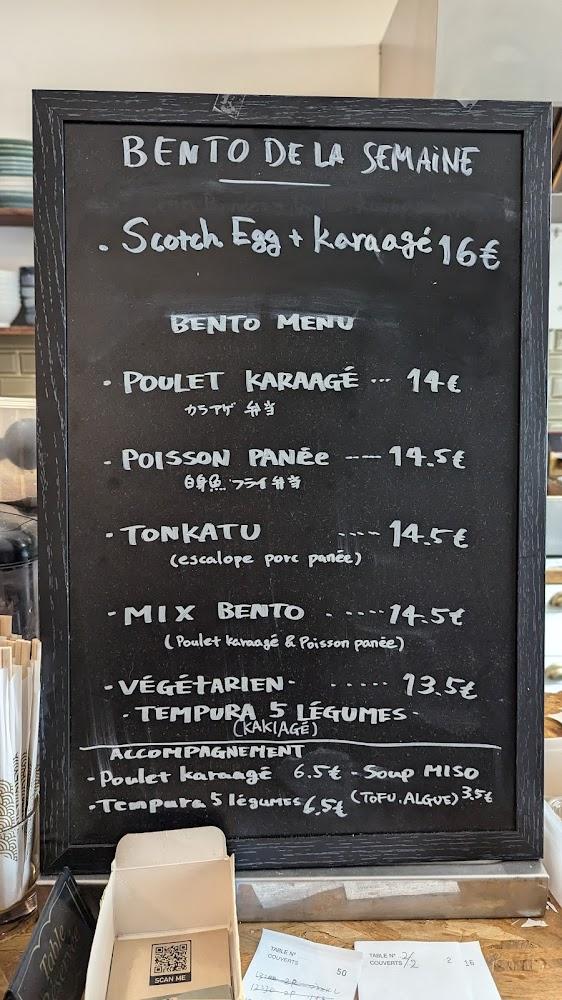 BENTO DE LA SEMAINE
· Scotch Egg + karaagé 16€
BENTO MENU
· POULET KARAAGÉ ··· 14€
カラアゲ 弁当
· POISSON PANÉe ---- 14.5€
白身魚 フライ弁当
· TONKATU ···· 14.5€
(escalope porc panée)
· MIX BENTO · ···· 14.5€
(Poulet karaagé & Poisson panée)
· VÉGÉTARIEN · ····· 13.5€
· TEMPURA 5 LÉGUMES ·
(KAKIAGÉ)
ACCOMPAGNEMENT
· Poulet karaagé 6.5€ · Soup MISO
· Tempura 5 légumes 6.5€ (TOFU. ALGUE) 3.5€
SCAN ME
TABLE N°
COUVERTS 50
TABLE N° 2/2 2 16
COUVERTS